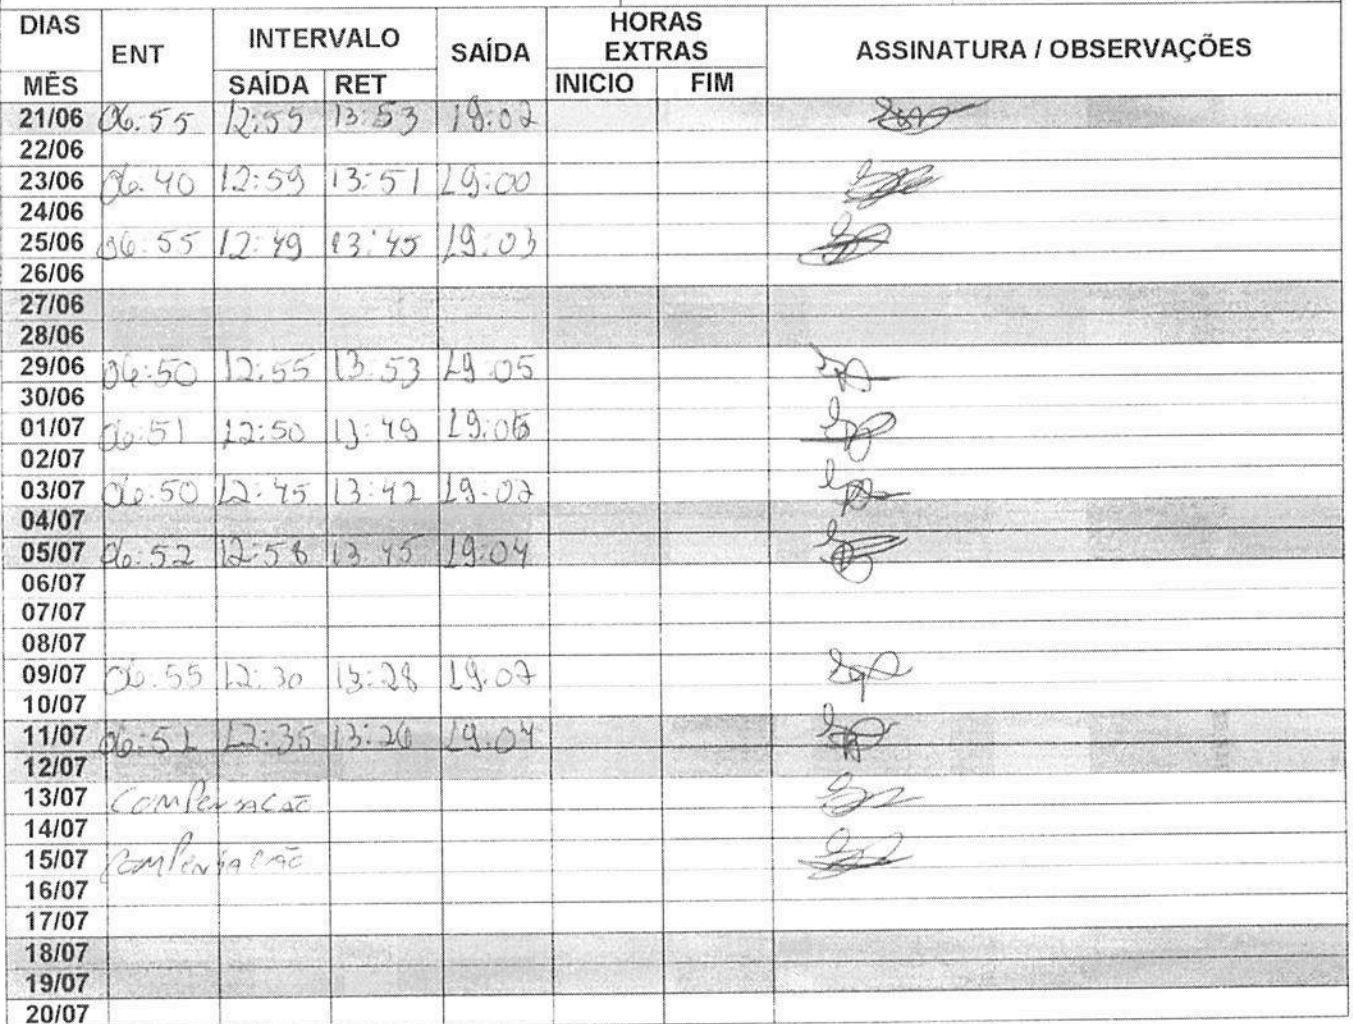 DIAS ENT INTERVALO SAÍDA HORAS EXTRAS ASSINATURA / OBSERVAÇÕES
MÊS SAÍDA RET INICIO FIM
21/06 06:55 12:55 13:53 19:02
22/06
23/06 06:40 12:59 13:51 19:00
24/06
25/06 06:55 12:49 13:45 19:03
26/06
27/06
28/06
29/06 06:50 12:55 13:53 19:05
30/06
01/07 06:51 12:50 13:49
02/07
03/07 06:50 12:45 13:42 19:02
04/07
05/07 06:52 12:58 13:45 19:04
06/07
07/07
08/07
09/07 06:55 12:30 13:28 19:02
10/07
11/07 06:51 12:35 13:26 19:04
12/07
13/07 Compensação
14/07
15/07 Compensação
16/07
17/07
18/07
19/07
20/07